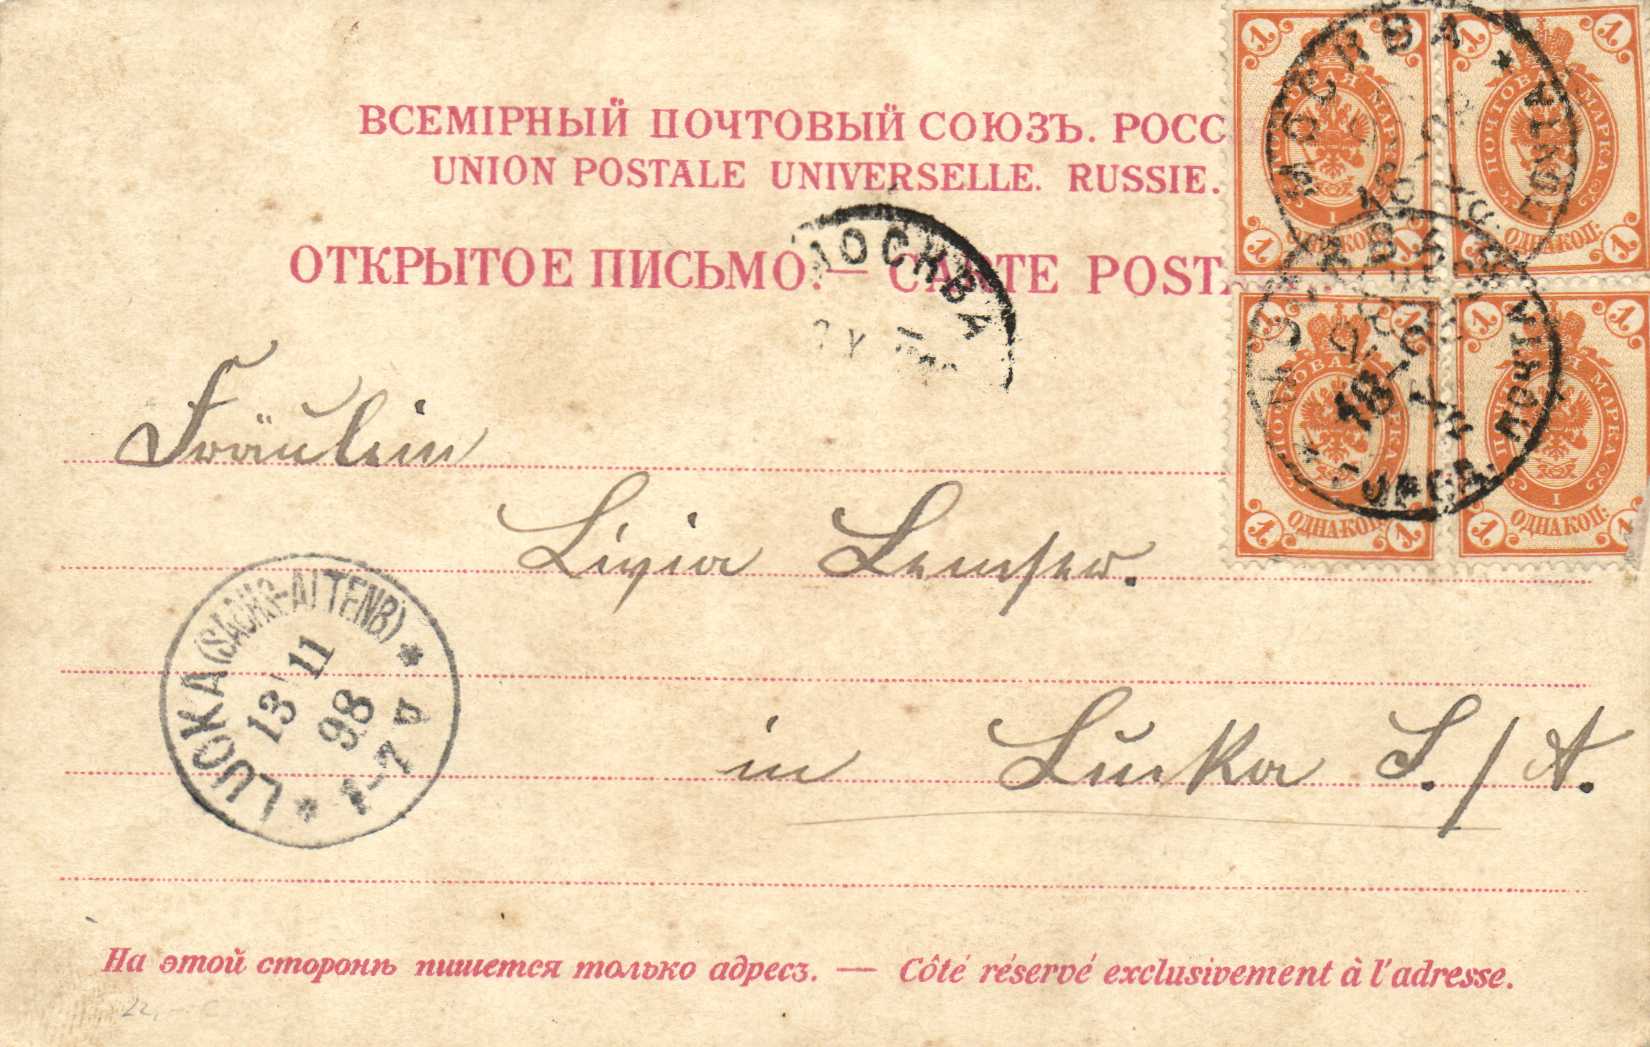 ВСЕМІРНЫЙ ПОЧТОВЫЙ СОЮЗЪ. РОСС
UNION POSTALE UNIVERSELLE. RUSSIE.
ОТКРЫТОЕ ПИСЬМО. — CARTE POST
МОСКВА
МОСКВА
ПОЧТОВАЯ МАРКА
ОДНА КОП:
1
Fräulein
Livia Lemser.
in Lucka S./A.
LUCKA (SACHS-ALTENB)
13 11
98
1-7 V
На этой сторонѣ пишется только адресъ. — Côté réservé exclusivement à l'adresse.